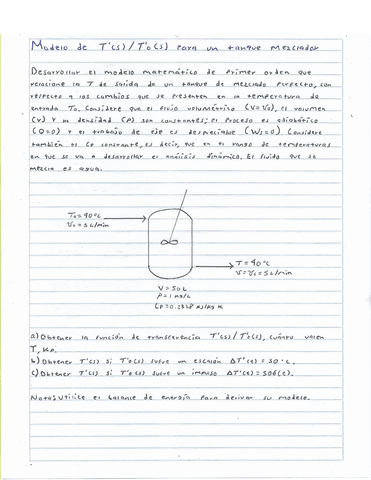 Modelo de T'(s)/T'o(s) para un tanque mezclador
Desarrollar el modelo matemático de primer orden que
relacione la T de salida de un tanque de mezclado perfecto, con
respecto a los cambios que se presenten en la temperatura de
entrada To. Considere que el fluido volumétrico (V=Vo), el volumen
(V) y la densidad (ρ) son constantes; el proceso es adiabático
(Q=0) y el trabajo de eje es despreciable (Ws=0). Considere
también el Cp constante, es decir, que en el rango de temperaturas
en que se va a desarrollar el análisis dinámico. El fluido que se
mezcla es agua.
To=40°C
V̇o=5L/min
T=40°C
V̇=V̇o=5L/min
V=50L
ρ=1 kg/L
a) Obtener la función de transferencia T'(s)/T'o(s), cuánto valen
T, Kp.
b) Obtener T'(s) si T'o(s) sufre un escalón ΔT'(t)=50°C.
c) Obtener T'(s) si T'o(s) sufre un impulso ΔT'(t)=50δ(t).
Nota: Utilice el balance de energía para derivar su modelo.